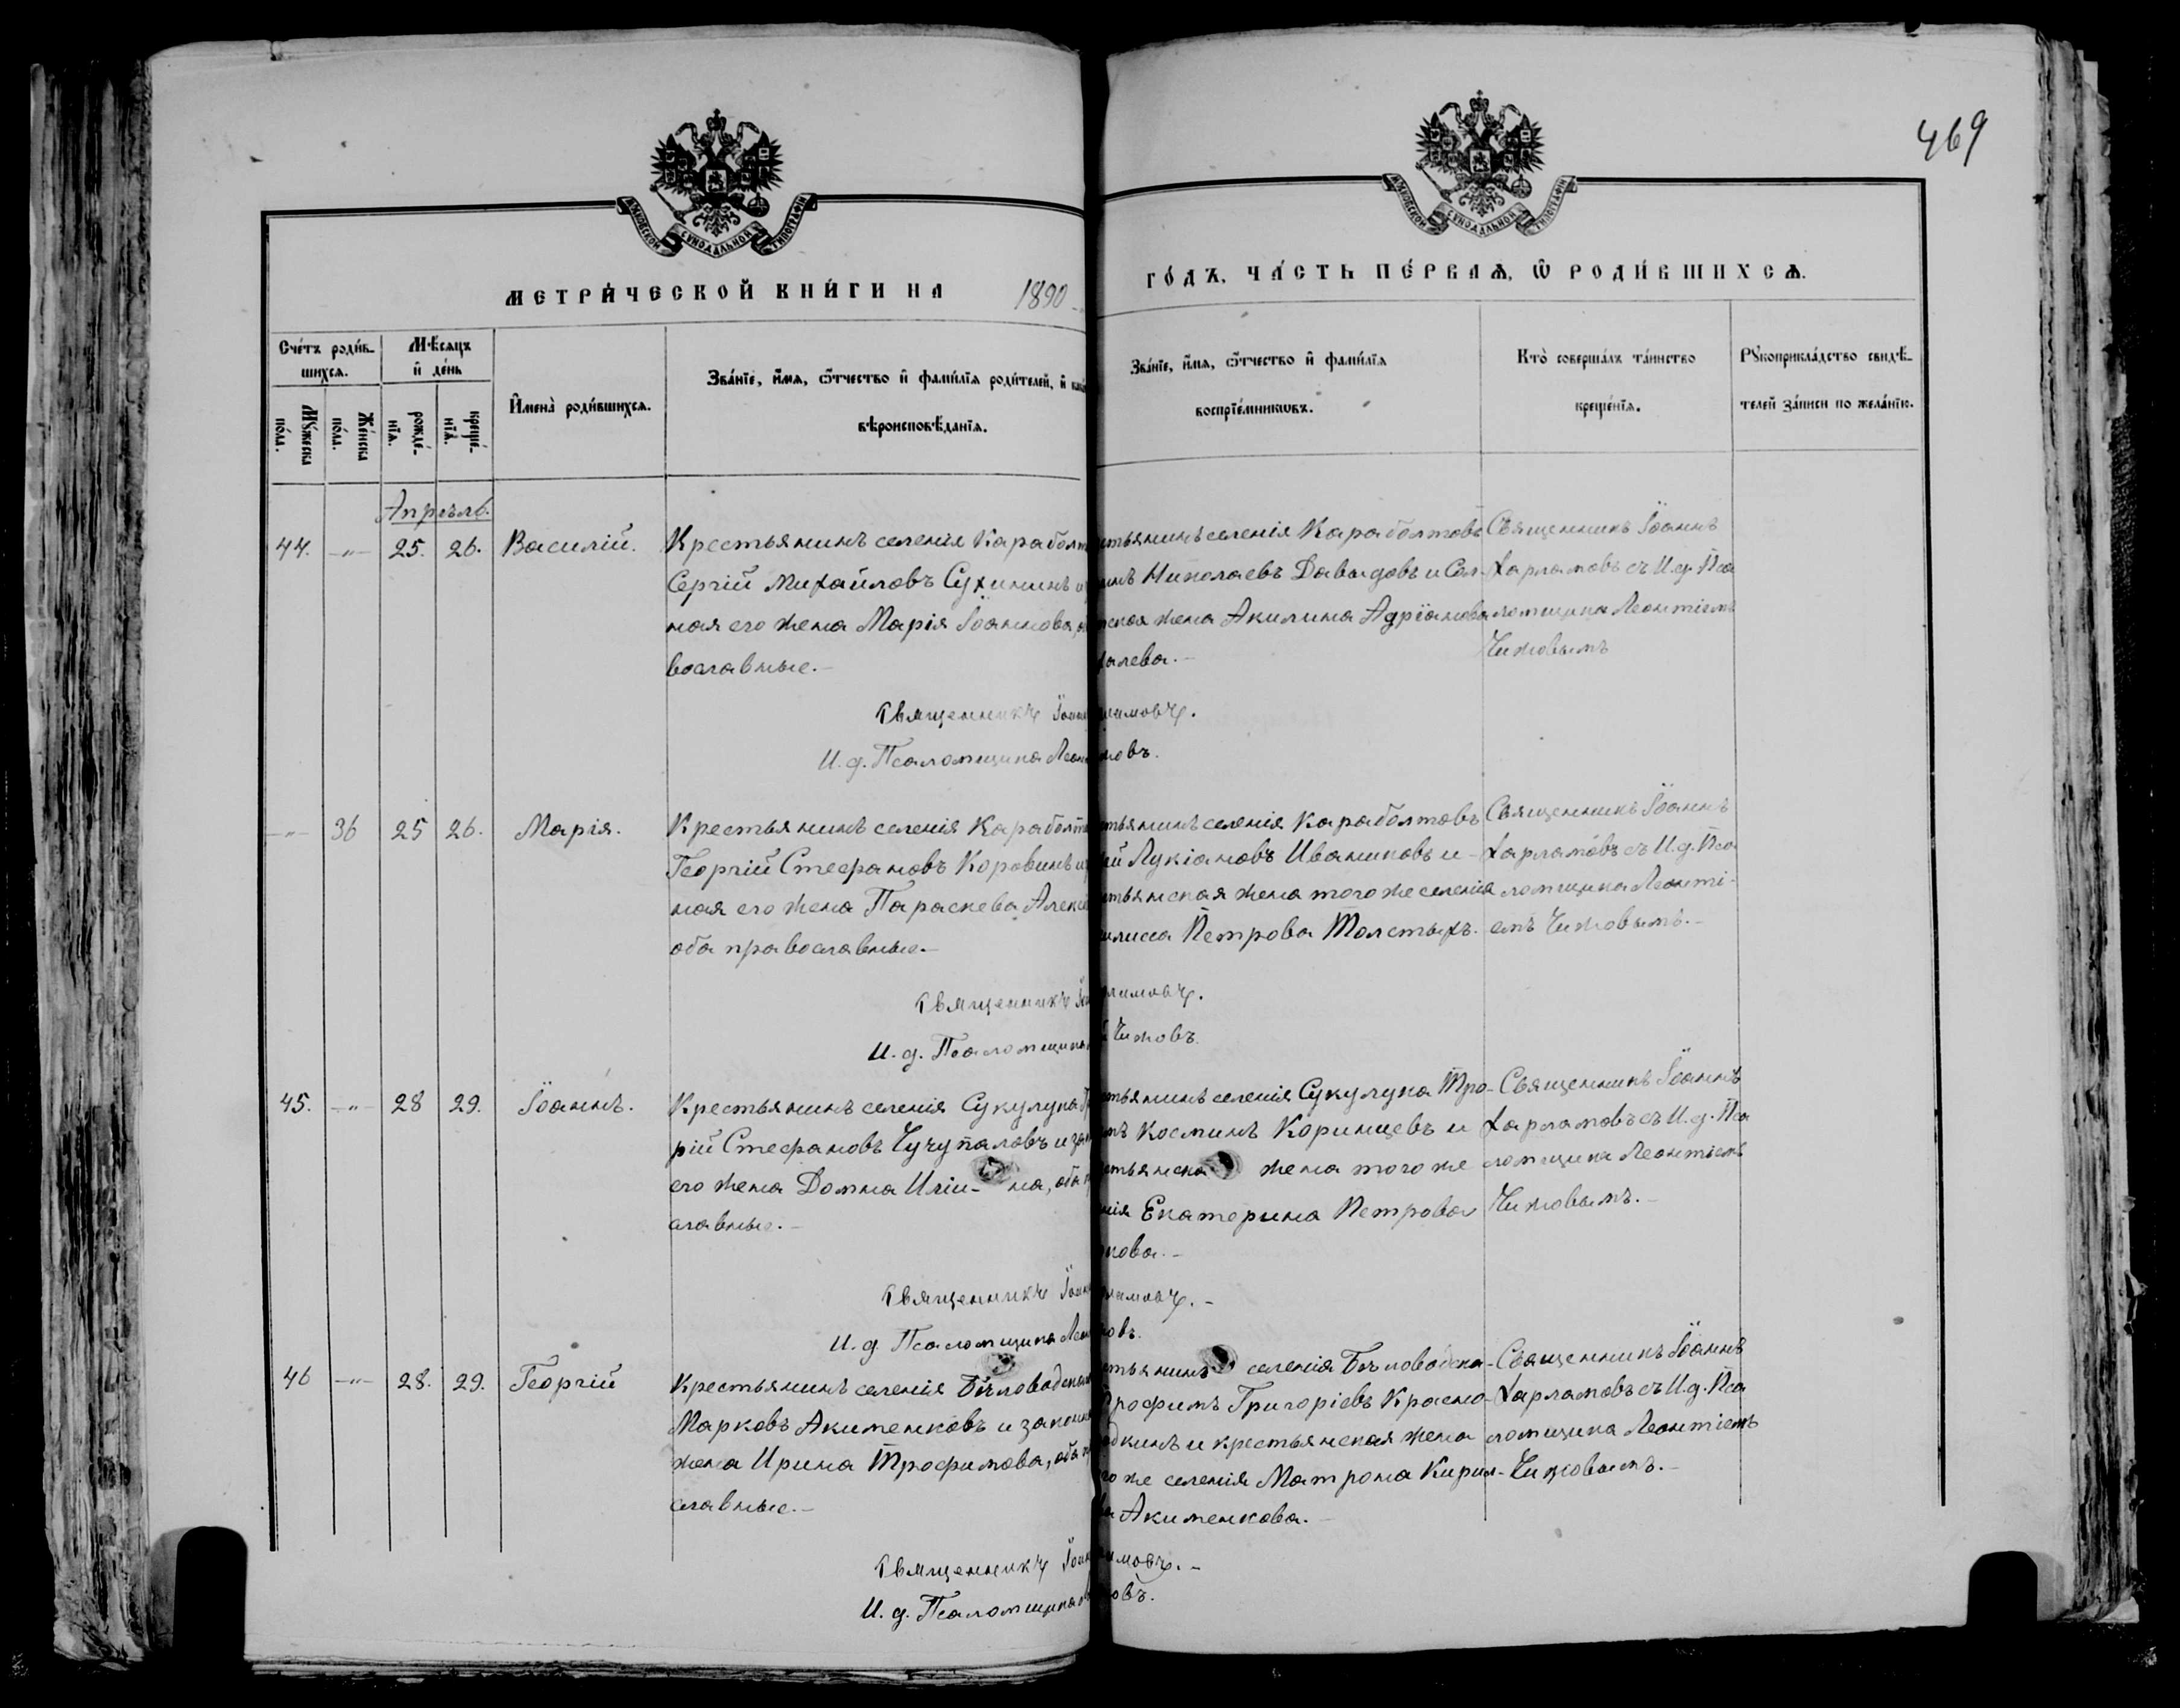 469
МОСКОВСКОЙ СѴНОДАЛЬНОЙ ТИПОГРАФІИ
МОСКОВСКОЙ СѴНОДАЛЬНОЙ ТИПОГРАФІИ
МЕТРИ́ЧЕСКОЙ КНИ́ГИ НА 1890
ГО́ДЪ, ЧА́СТЬ ПЕ́РВАѦ, Ѿ РОДИ́ВШИХСѦ.
Сче́тъ роди́в-
шихсѧ.
Мꙋ́жеска по́ла.
Же́нска по́ла.
Мѣ́сѧцъ
и҆ де́нь
рожде́-
нїѧ.
креще́-
нїѧ.
И҆мена̀ роди́вшихсѧ.
Зва́нїе, и҆́мѧ, ѻ҆́тчество и҆ фами́лїѧ роди́телей, и҆
вѣроисповѣ́данїѧ.
Зва́нїе, и҆́мѧ, ѻ҆́тчество и҆ фами́лїѧ
воспрїе́мникѡвъ.
Кто̀ соверша́лъ та́инство
креще́нїѧ.
Рꙋкоприкла́дство свидѣ́-
телей за́писи по жела́нїю.
Апрѣль.
44. -"- 25. 26. Василій.
Крестьянинъ селенія Караболт
Сергій Михайловъ Сухининъ и
ная его жена Марія Іоаннова,
вославные.-
стьянинъ селенія Караболтовъ
инъ Николаевъ Давыдовъ и Сол-
тская жена Акилина Адріанова
халева.-
Священникъ Іоаннъ
Харламовъ съ И.д. Пса
ломщика Леонтіемъ
Чижовымъ
Священникъ Іоан ламовъ.
И. д. Псаломщика Леон жовъ.
-"- 36 25 26. Марія.
Крестьянинъ селенія Караболт
Георгій Стефановъ Коровинъ и
ная его жена Параскева Алекс
оба православные.-
стьянинъ селенія Караболтовъ
ей Лукіановъ Иваниковъ и
стьянская жена того же селенія
лисса Петрова Толстыхъ.
Священникъ Іоаннъ
Харламовъ съ И.д. Пса
ломщика Леонті-
емъ Чижовымъ.-
Священникъ Іоа ламовъ.
И. д. Псаломщика й Чижовъ.
45. -"- 28 29. Іоаннъ.
Крестьянинъ селенія Сукулука
рій Стефановъ Чучупаловъ и зак
его жена Домна Иліи- на, оба п
славные.-
стьянинъ селенія Сукулука Тро-
мъ Косминъ Коринцевъ и
стьянска жена того же
нія Екатерина Петрова
кова.-
Священникъ Іоаннъ
Харламовъ съ И.д. Пса
ломщика Леонтіемъ
Чижовымъ.-
Священникъ Іоан ламовъ.-
И. д. Псаломщика Леон овъ.
46 -"- 28. 29. Георгій
Крестьянинъ селенія Бѣловодска
Марковъ Акименковъ и законн
жена Ирина Трофимова, оба п
славные.-
стьянинъ селенія Бѣловодска-
Трофимъ Григоріевъ Красно-
дкинъ и крестьянская жена
го же селенія Матрона Кирил-
ва Акименкова.-
Священникъ Іоаннъ
Харламовъ съ И.д. Пса
ломщика Леонтіемъ
Чижовымъ.-
Священникъ Іоан ламовъ.-
И. д. Псаломщика овъ.